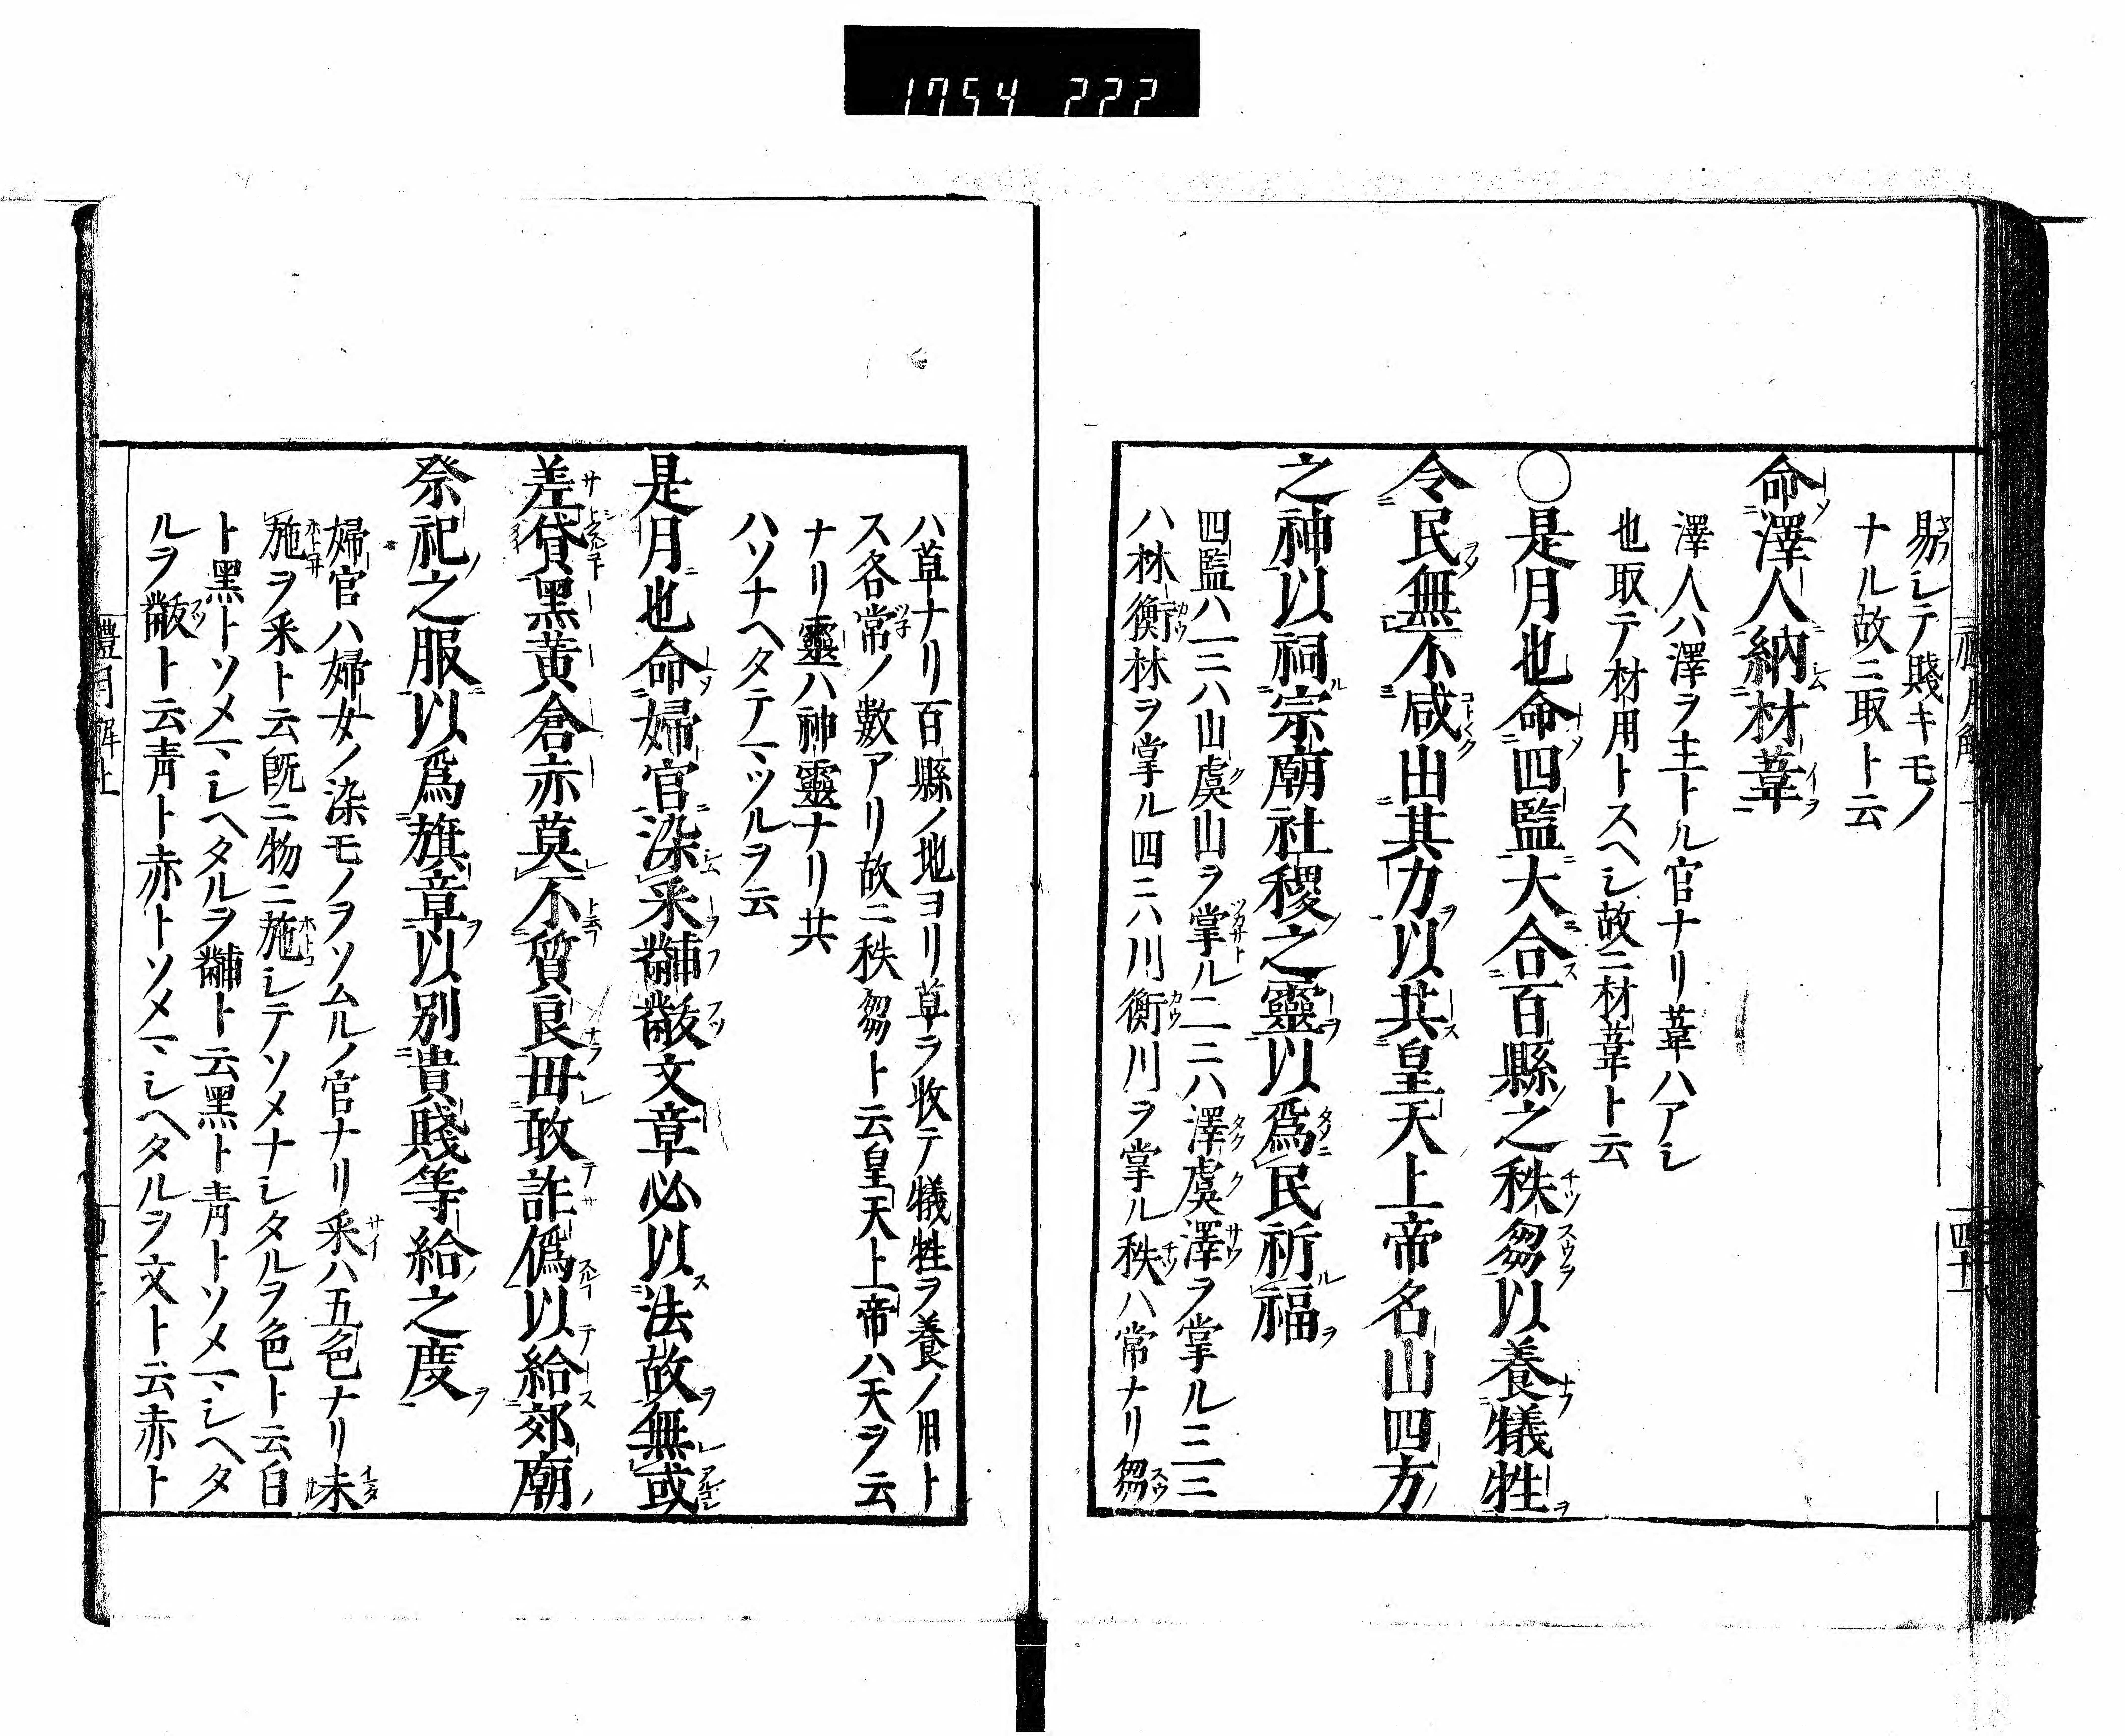 1754 222
易シテ賤キモノ
ナル故ニ取ト云
命澤人納材葦
澤人ハ澤ヲ主トル官ナリ葦ハアシ
也取テ材用トスヘシ故ニ材葦ト云
○是月也命四監大合百縣之秩芻以養犧牲
令民無不咸出其力以共皇天上帝名山四方
之神以祠宗廟社稷之靈以爲民祈福
四監ハ一ニハ山虞山ヲ掌ル二ニハ澤虞澤ヲ掌ル三ニ
ハ林衡林ヲ掌ル四ニハ川衡川ヲ掌ル秩ハ常ナリ芻
ハ草ナリ百縣ノ地ヨリ草ヲ收テ犧牲ヲ養ノ用ト
ス各常ノ數アリ故ニ秩芻ト云皇天上帝ハ天ヲ云
ナリ靈ハ神靈ナリ共
ハソナヘタテマツルヲ云
是月也命婦官染采黼黻文章必以法故無或
差貸黑黃倉赤莫不質良毋敢詐僞以給郊廟
祭祀之服以爲旗章以別貴賤等給之度
婦官ハ婦女ノ染モノヲソムルノ官ナリ采ハ五色ナリ未
施ヲ采ト云既ニ物ニ施シテソメナシタルヲ色ト云白
ト黑トソメマシヘタルヲ黼ト云黑ト靑トソメマシヘタ
ルヲ黻ト云靑ト赤トソメマシヘタルヲ文ト云赤ト
禮月解上